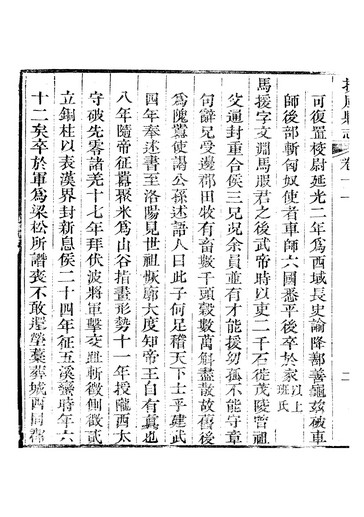 可復置校尉延光二年爲西域長史諭降鄯善龜兹破車
師後部斬匈奴使者車師六國悉平後卒於家以上班氏
馬援字文淵馬服君之後武帝時以吏二千石徙茂陵曾祖
父通封重合侯三兄況余員並有才能援幼孤不能守章
句辭兄受邊郡田牧有畜數千頭穀數萬斛盡散故舊後
爲隗囂使謁公孫述語人曰此子何足稽天下士乎建武
四年奉述書至洛陽見世祖恢廓大度知帝王自有真也
八年隨帝征囂聚米爲山谷指畫形勢十一年授隴西太
守破先零諸羌十七年拜伏波將軍擊交趾斬徵側徵貳
立銅柱以表漢界封新息侯二十四年征五溪蠻時年六
十二矣卒於軍爲梁松所譖喪不敢還塋藁葬城西同郡